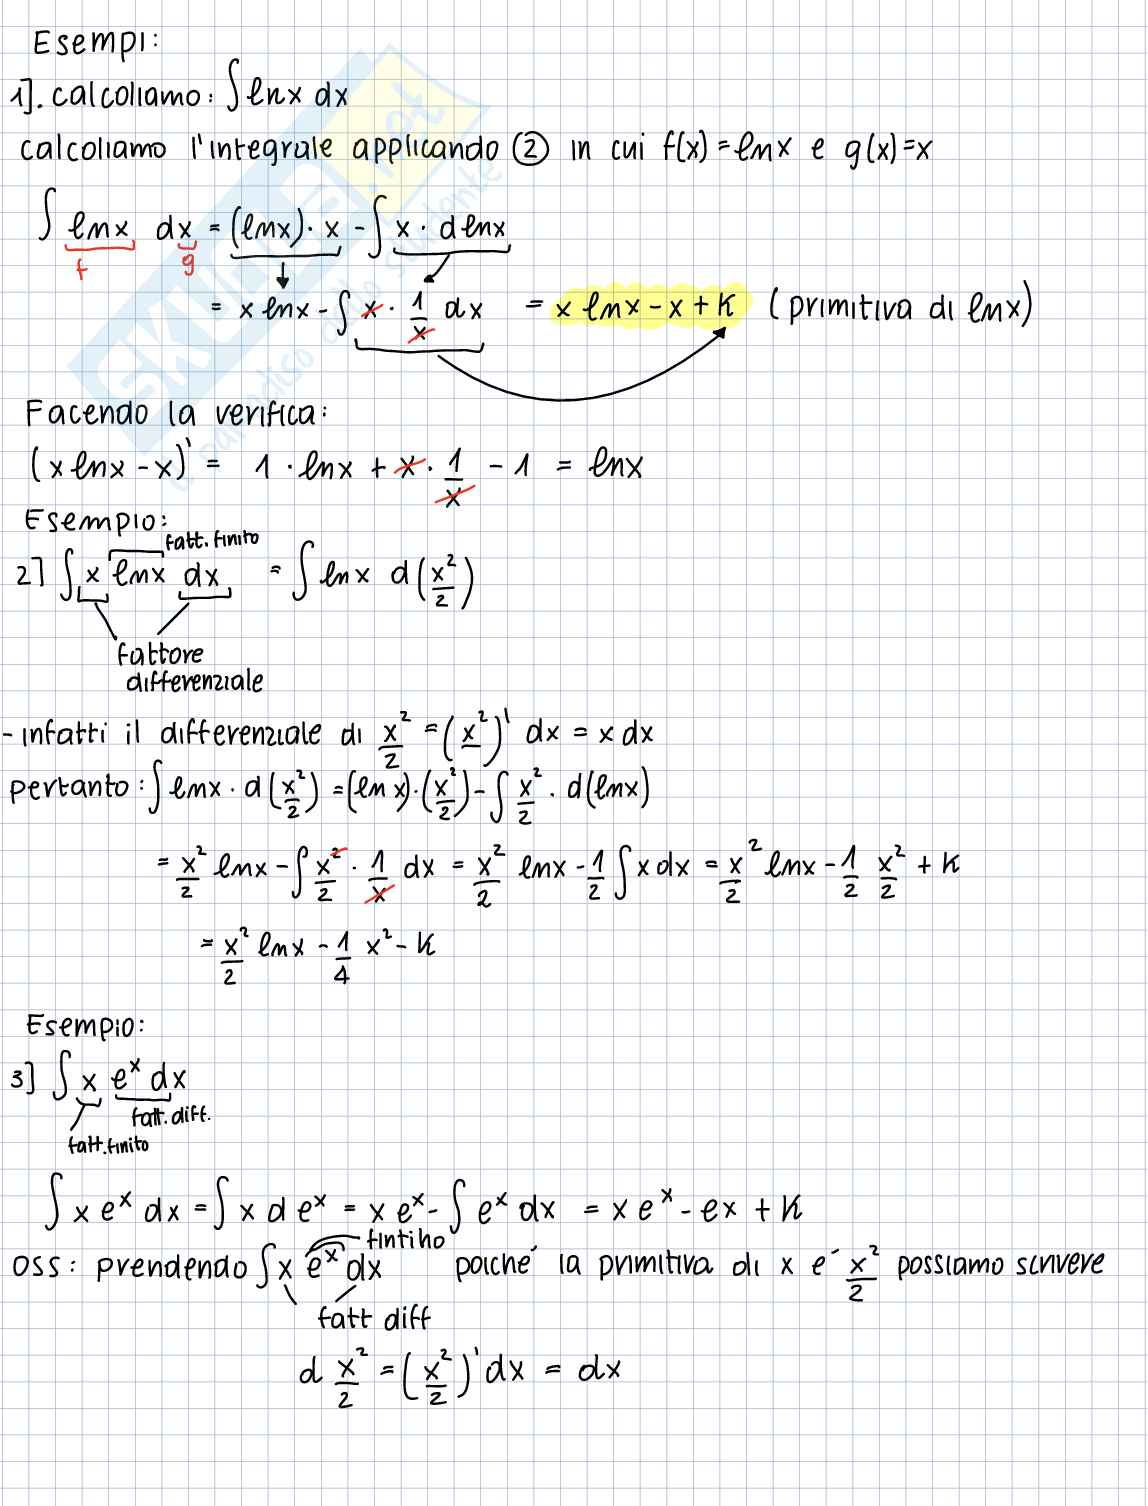 Esempi:
1]. calcoliamo: ∫ lnx dx
calcoliamo l'integrale applicando ② in cui f(x) = lnx e g(x) = x
∫ lnx dx = (lnx) · x - ∫ x · d lnx
f g
= x lnx - ∫ x · 1/x dx = x lnx - x + k (primitiva di lnx)
Facendo la verifica:
(x lnx - x)' = 1 · lnx + x · 1/x - 1 = lnx
Esempio:
fatt. finito
2] ∫ x lnx dx = ∫ lnx d(x²/2)
fattore
differenziale
- infatti il differenziale di x²/2 = (x²)' dx = x dx
pertanto: ∫ lnx · d(x²/2) = (ln x) · (x²/2) - ∫ x²/2 · d(lnx)
= x²/2 lnx - ∫ x²/2 · 1/x dx = x²/2 lnx - 1/2 ∫ x dx = x²/2 lnx - 1/2 x²/2 + k
= x²/2 lnx - 1/4 x² - k
Esempio:
3] ∫ x eˣ dx
fatt. diff.
fatt. finito
∫ x eˣ dx = ∫ x d eˣ = x eˣ - ∫ eˣ dx = x eˣ - ex + k
fintiho
OSS: prendendo ∫ x eˣ dx poiché la primitiva di x e´ x²/2 possiamo scrivere
fatt diff
d x²/2 = (x²/2)' dx = dx
SKUOLA.net
il paradiso dello studente